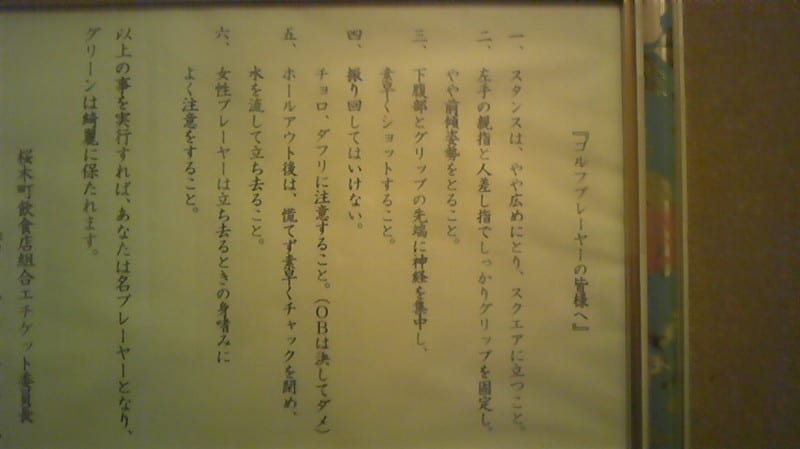 『ゴルフプレーヤーの皆様へ』
一、スタンスは、やや広めにとり、スクエアに立つこと。
二、左手の親指と人差し指でしっかりグリップを固定し、
やや前傾姿勢をとること。
三、下腹部とグリップの先端に神経を集中し、
素早くショットすること。
四、振り回してはいけない。
チョロ、ダフリに注意すること。(OBは決してダメ)
五、ホールアウト後は、慌てず素早くチャックを閉め、
水を流して立ち去ること。
六、女性プレーヤーは立ち去るときの身嗜みに
よく注意をすること。
以上の事を実行すれば、あなたは名プレーヤーとなり、
グリーンは綺麗に保たれます。
桜木町飲食店組合エチケット委員長